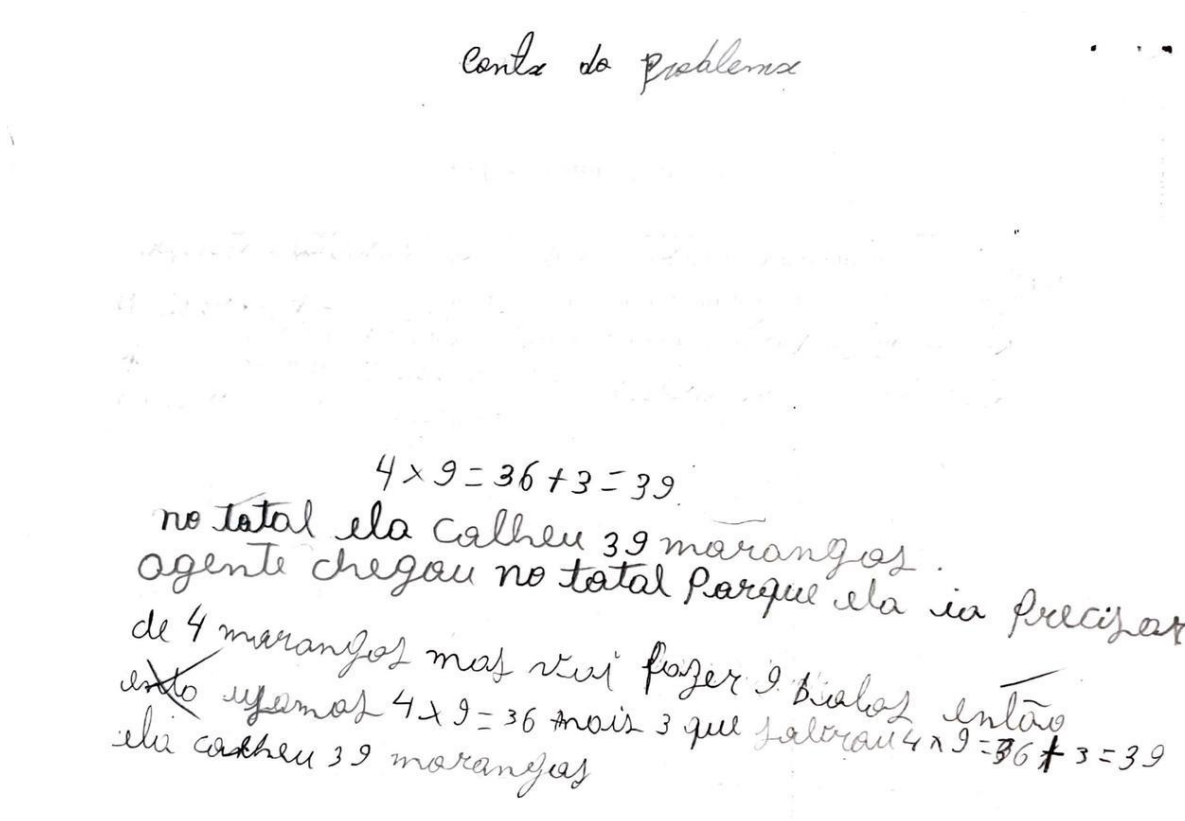 Conta do problema
4 x 9 = 36 + 3 = 39.
no total ela colheu 39 morangos.
agente chegou no total Porque ela ia Precisar
de 4 morangos mas vai fazer 9 bolos então
usamos 4 x 9 = 36 mais 3 que sobrou 4 x 9 = 36 + 3 = 39
ela colheu 39 morangos